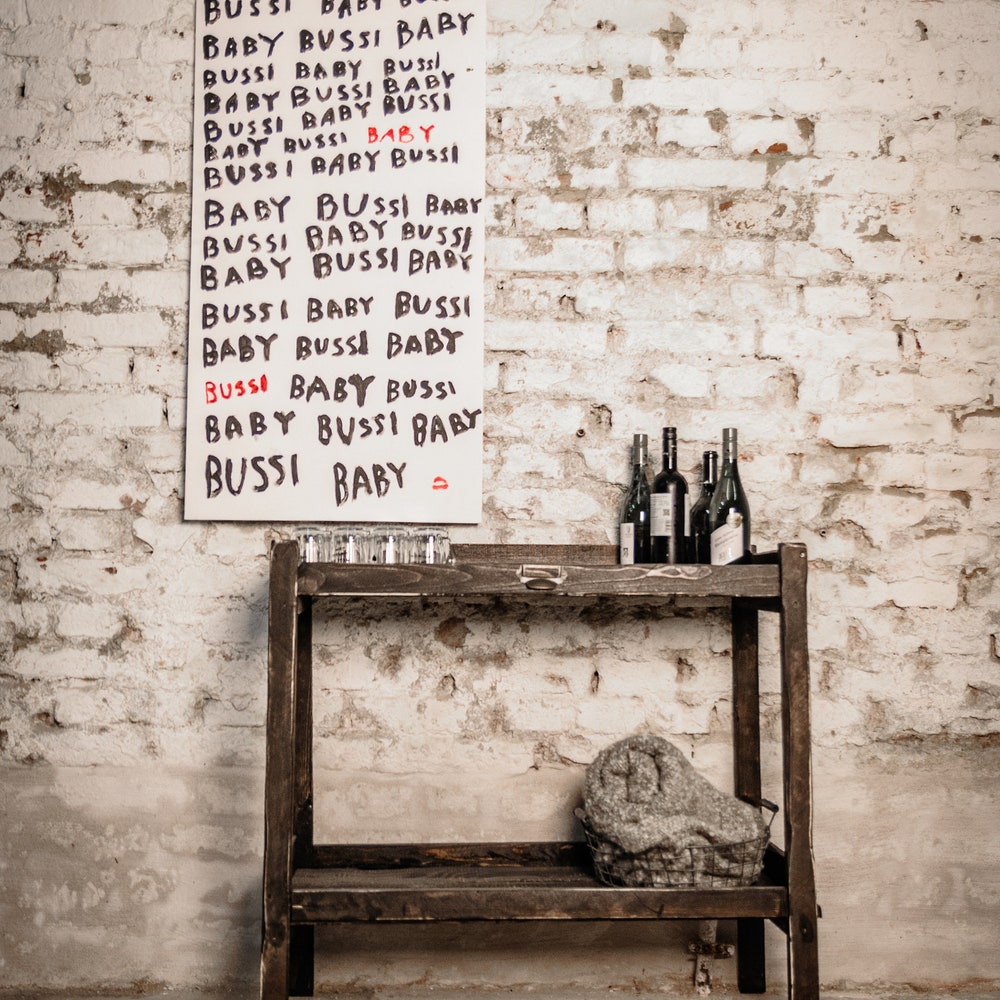 BUSSI BABY BUSSI
BABY BUSSI BABY
BUSSI BABY BUSSI
BABY BUSSI BABY
BUSSI BABY BUSSI
BABY BUSSI BABY
BUSSI BABY BUSSI
BABY BUSSI BABY
BUSSI BABY BUSSI
BABY BUSSI BABY
BUSSI BABY BUSSI
BABY BUSSI BABY
BUSSI BABY BUSSI
BABY BUSSI BABY
BUSSI BABY